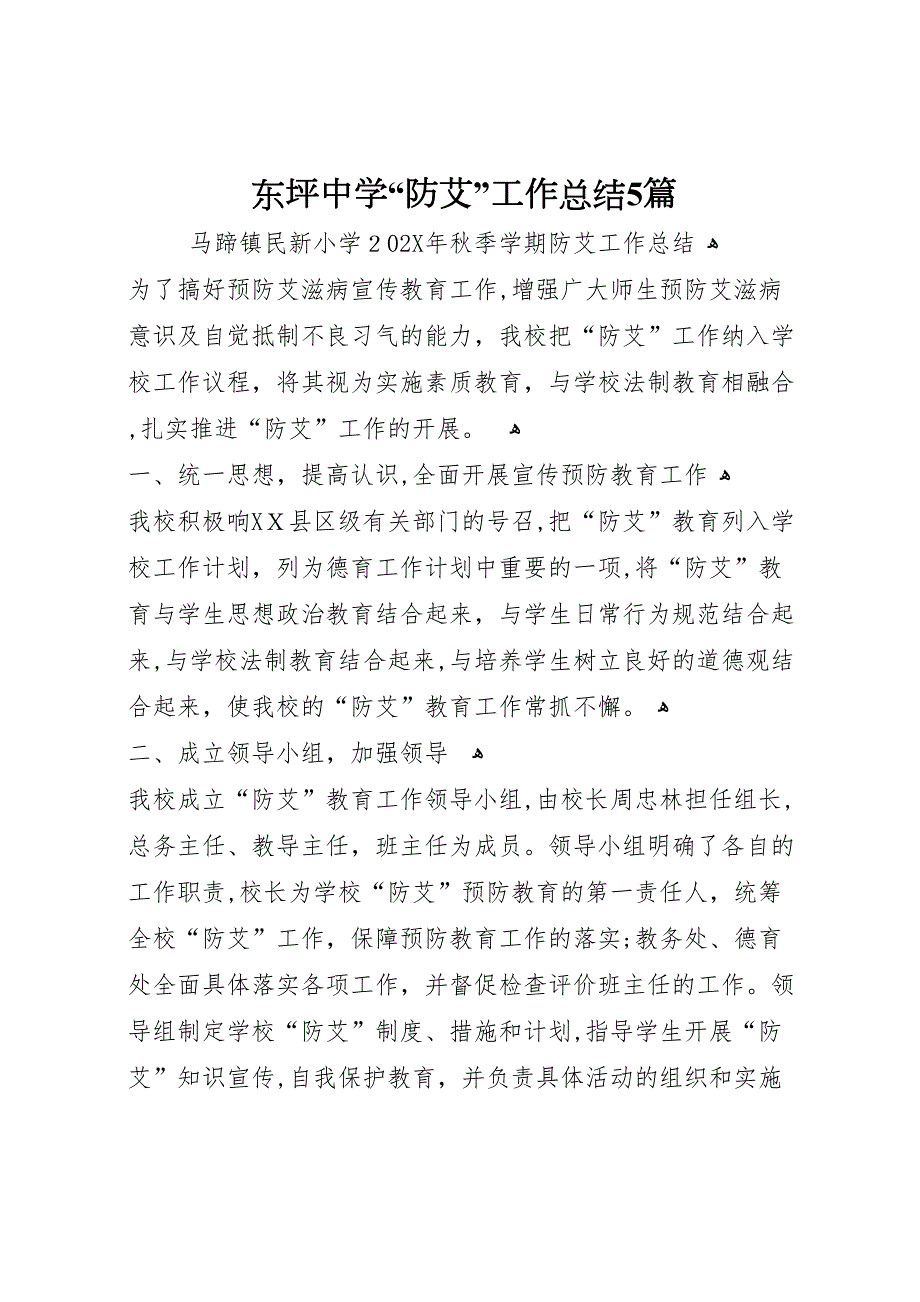 东坪中学“防艾”工作总结5篇
马蹄镇民新小学２02X年秋季学期防艾工作总结 ﻫ
为了搞好预防艾滋病宣传教育工作,增强广大师生预防艾滋病
意识及自觉抵制不良习气的能力，我校把“防艾”工作纳入学
校工作议程，将其视为实施素质教育，与学校法制教育相融合
,扎实推进“防艾”工作的开展。 ﻫ
一、统一思想，提高认识,全面开展宣传预防教育工作 ﻫ
我校积极响XＸ县区级有关部门的号召,把“防艾”教育列入学
校工作计划，列为德育工作计划中重要的一项,将“防艾”教
育与学生思想政治教育结合起来，与学生日常行为规范结合起
来,与学校法制教育结合起来,与培养学生树立良好的道德观结
合起来，使我校的“防艾”教育工作常抓不懈。 ﻫ
二、成立领导小组，加强领导 ﻫ
我校成立“防艾”教育工作领导小组,由校长周忠林担任组长,
总务主任、教导主任，班主任为成员。领导小组明确了各自的
工作职责,校长为学校“防艾”预防教育的第一责任人，统筹
全校“防艾”工作，保障预防教育工作的落实;教务处、德育
处全面具体落实各项工作，并督促检查评价班主任的工作。领
导组制定学校“防艾”制度、措施和计划,指导学生开展“防
艾”知识宣传,自我保护教育，并负责具体活动的组织和实施